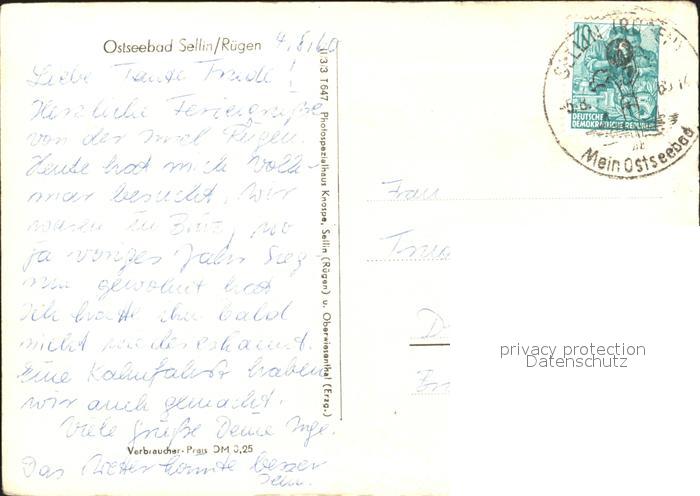 Ostseebad Sellin/Rügen 4.8.60
Liebe Tante Trude!
Herzliche Feriengrüße
von der Insel Rügen.
Heute hat mich Volk-
mar besucht, wir
waren in Binz, wo
ja voriges Jahr Sieg-
run gewohnt hat
Ich hatte ihn bald
nicht wiedererkannt.
Eine Kahnfahrt haben
wir auch gemacht.
Viele Grüße Deine Inge.
Verbraucher-Preis DM 0,25
Das Wetter könnte besser
sein.
II/3/3 T647 Photospezialhaus Knospe, Sellin (Rügen) u. Oberwiesenthal (Erzg.)
DEUTSCHE
DEMOKRATISCHE REPUBLIK
SELLIN (RÜGEN)
-5.8.60
Mein Ostseebad
Frau
privacy protection
Datenschutz